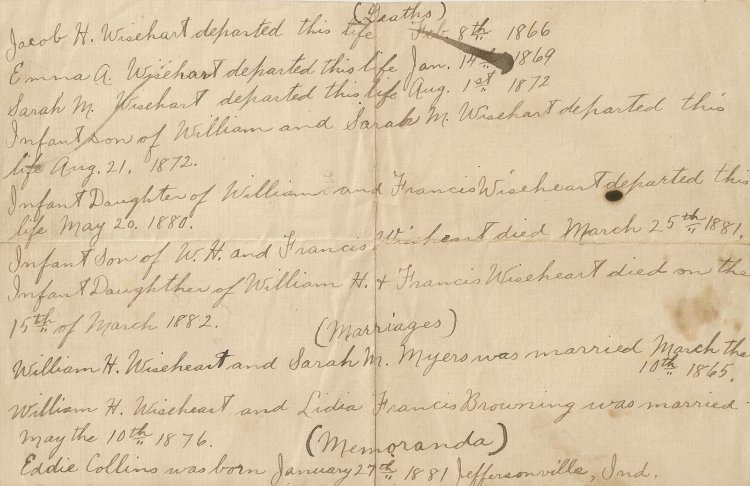 (Deaths)
Jacob H. Wisehart departed this life Feb 8th 1866
Emma A. Wisehart departed this life Jan. 14th 1869
Sarah M. Wisehart departed this life Aug. 1st 1872
Infant son of William and Sarah M. Wisehart departed this
life Aug. 21. 1872.
Infant Daughter of William and Francis Wiseheart departed this
life May 20. 1880.
Infant Son of W. H. and Francis Wiseheart died March 25th 1881.
Infant Daughther of William H. & Francis Wiseheart died on the
15th of March 1882.
(Marriages)
William H. Wiseheart and Sarah M. Myers was married March the
10th 1865.
William H. Wiseheart and Lidia Francis Browning was married
May the 10th 1876.
(Memoranda)
Eddie Collins was born January 27th 1881 Jeffersonville, Ind.